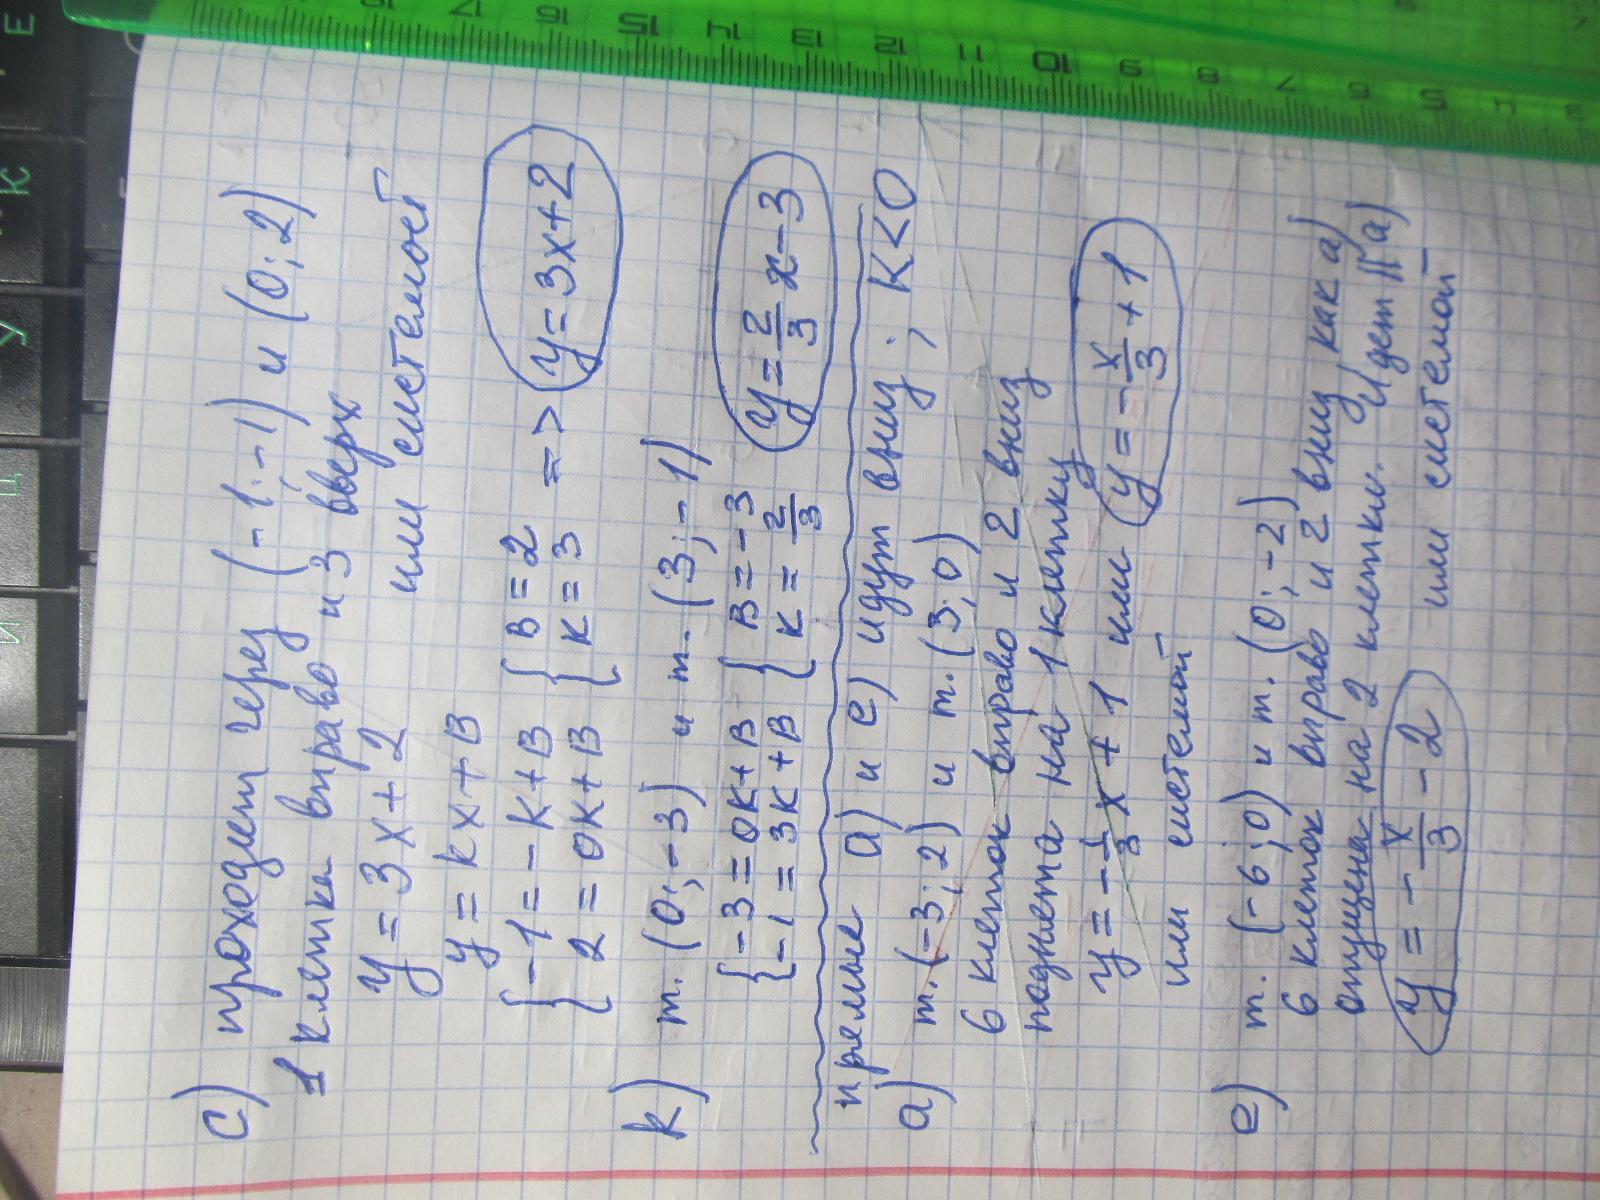 с) проходит через (-1;-1) и (0;2)
1 клетка вправо и 3 вверх
y = 3x + 2 или системой
y = kx + B
{-1 = -k + B {B = 2 => y = 3x + 2
2 = 0k + B k = 3
k) т. (0;-3) и т. (3;-1)
{-3 = 0k + B {B = -3 y = 2/3 x - 3
-1 = 3k + B k = 2/3
прямые а) и е) идут вниз; k<0
а) т. (-3;2) и т. (3;0)
6 клеток вправо и 2 вниз
поднята на 1 клетку
y = -1/3 x + 1 или y = -x/3 + 1
или системой
е) т. (-6;0) и т. (0;-2)
6 клеток вправо и 2 вниз как а)
опущена на 2 клетки. Идет || а)
y = -x/3 - 2 или системой
17 16 15 14 13 12 11 10 9 8 7 6 5 4 3
Е
К
У
Ц
Й